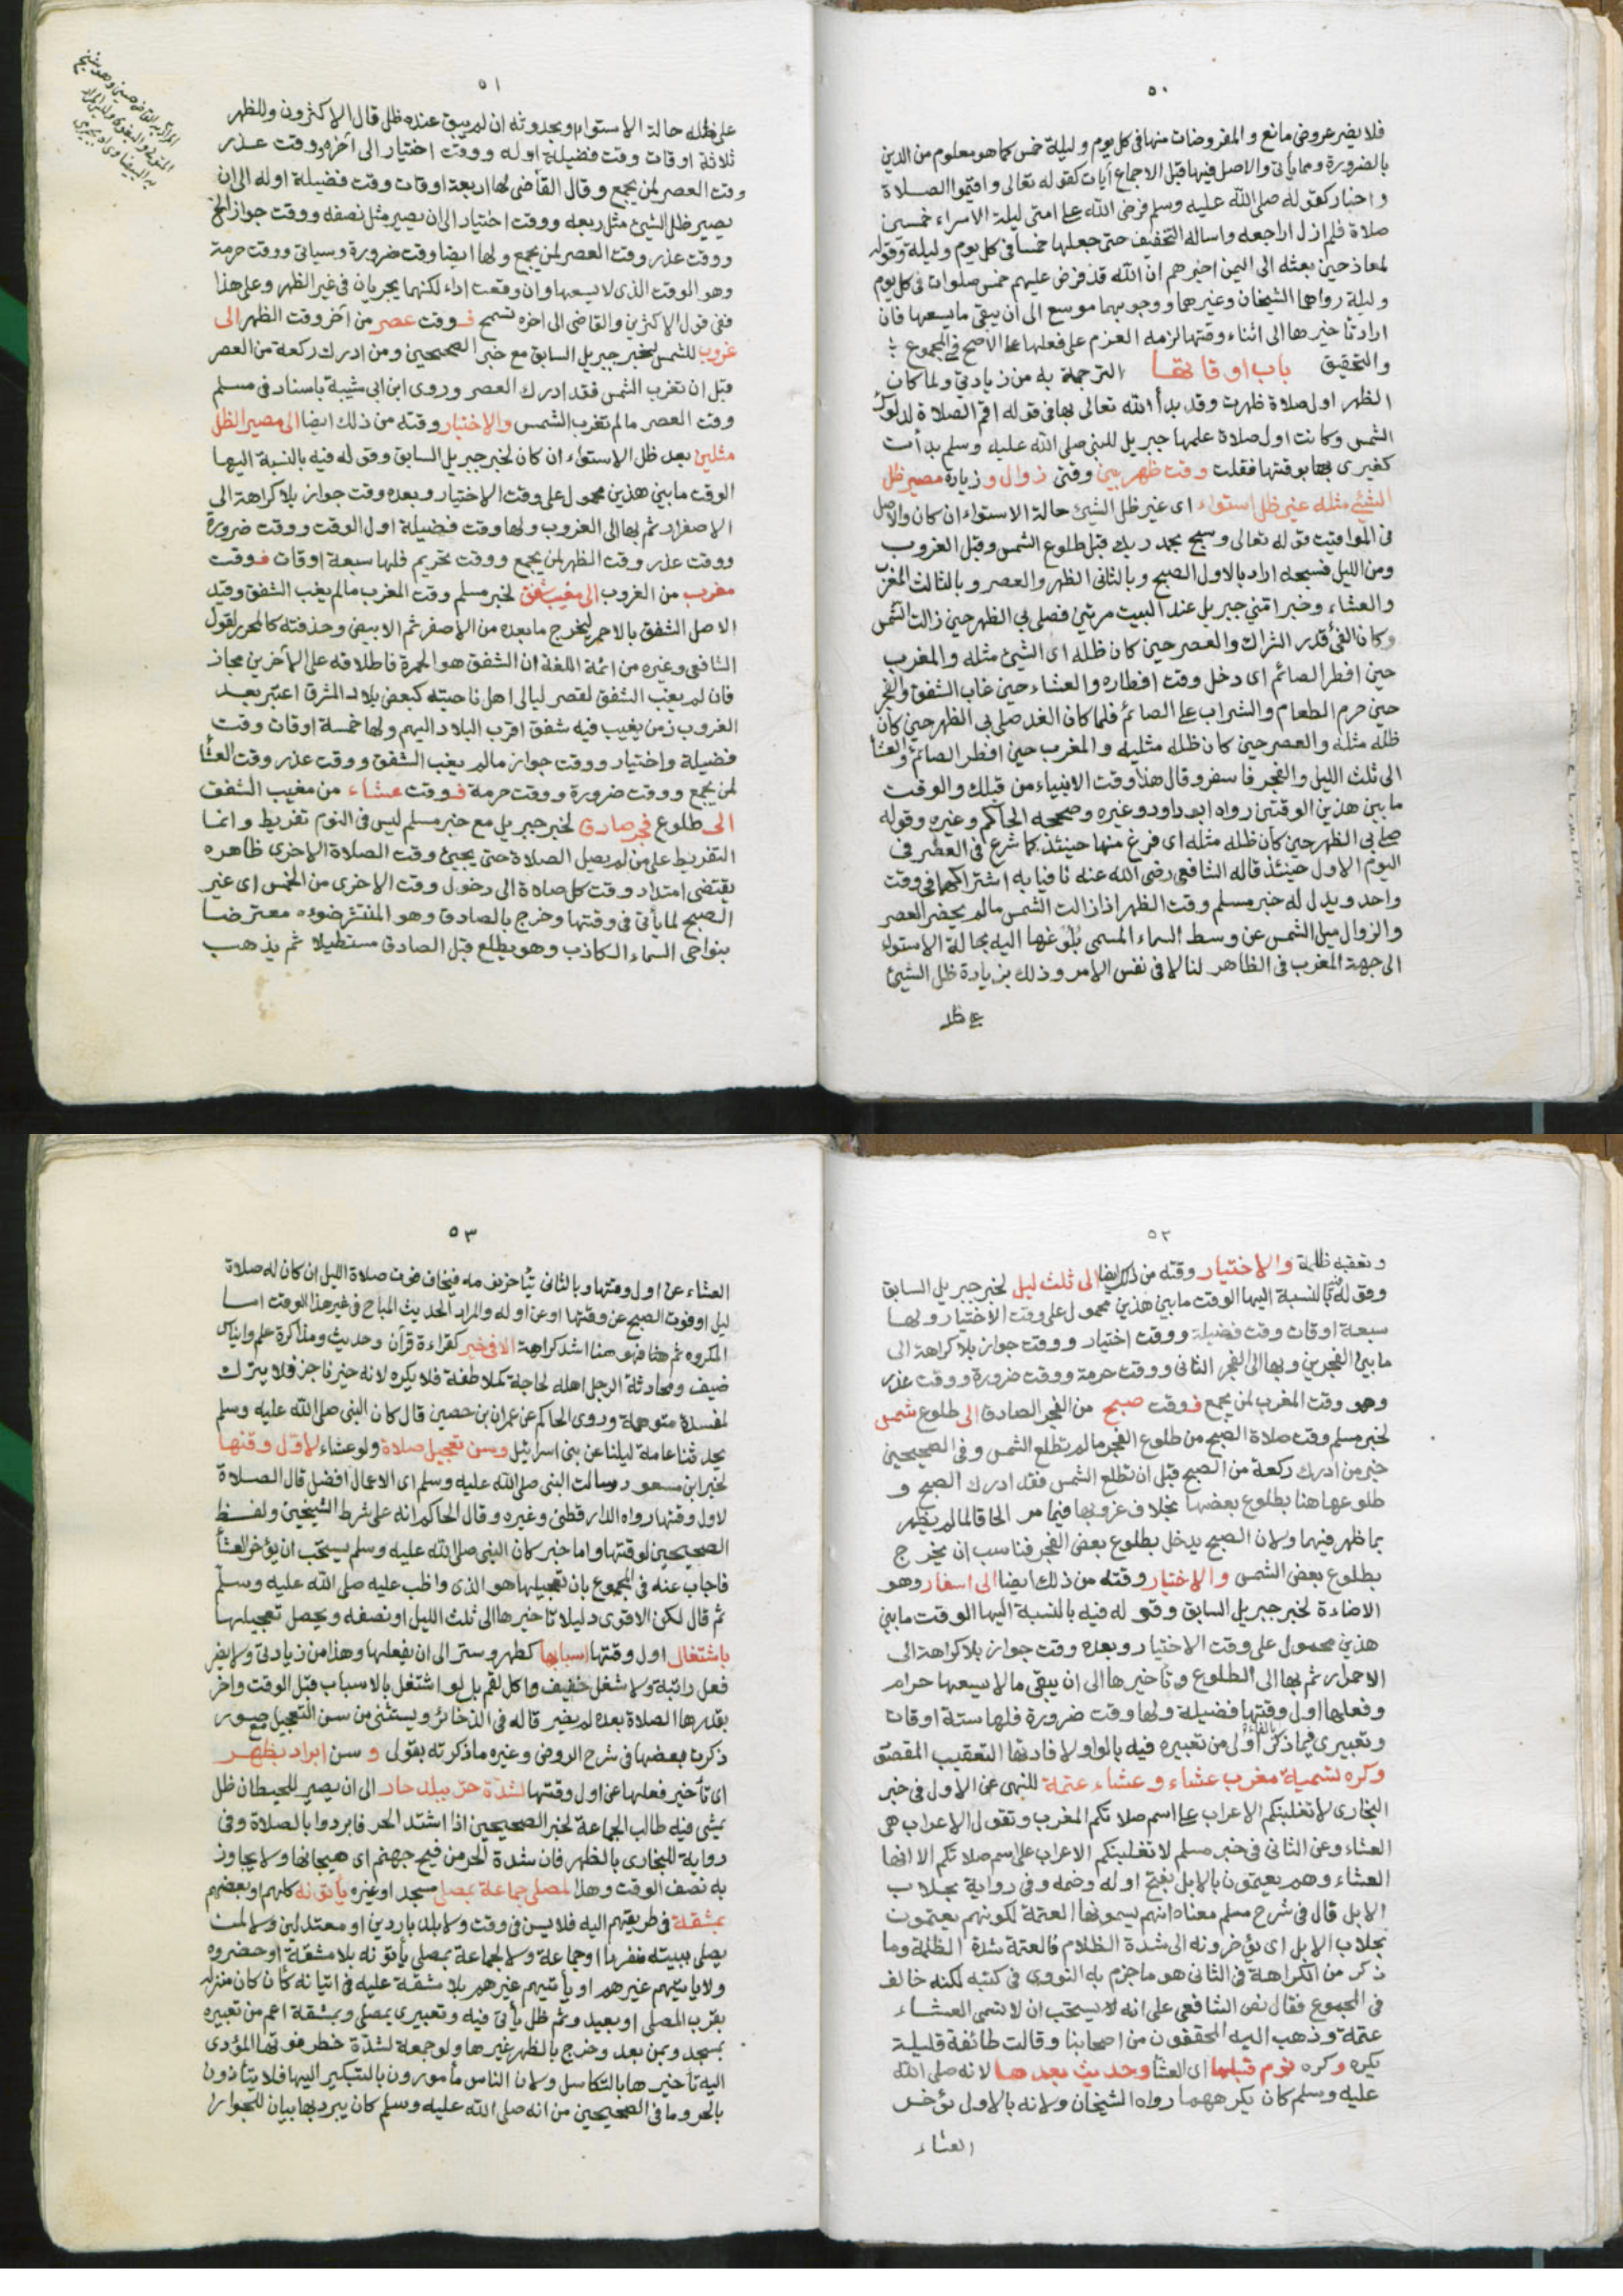 ٥٠
فلا يضر عروض مانع و المفروضات منها في كل يوم وليلة خمس كما هو معلوم من الدين
بالضرورة ومما يأتى والاصل فيها قبل الاجماع آيات كقوله تعالى واقيموا الصلاة
واخبار كقوله صلى الله عليه وسلم فرض الله على امتى ليلة الاسراء خمسين
صلاة فلم ازل اراجعه واساله التخفيف حتى جعلها خمسا في كل يوم وليلة وقوله
لمعاذ حين بعثه الى اليمن اخبرهم ان الله قد فرض عليهم خمس صلوات في كل يوم
وليلة رواها الشيخان وغيرهما ووجوبها موسع الى ان يبقى ما يسعها فان
اراد تاخيرها الى اثناء وقتها لزمه العزم على فعلها على الاصح في المجموع
والتحقيق باب اوقاتها الترجمة به من زيادتي ولما كان
الظهر اول صلاة ظهرت وقد بدأ الله تعالى بها في قوله اقم الصلاة لدلوك
الشمس وكانت اول صلاة علمها جبريل للنبي صلى الله عليه وسلم بدأت
كغيرى بها بوقتها فقلت وقت ظهر بين وقتي زوال و زيادة مصير ظل
الشيئ مثله غير ظل استواء اى غير ظل الشيئ حالة الاستواء ان كان والاصل
في المواقيت قوله تعالى وسبح بحمد ربك قبل طلوع الشمس وقبل الغروب
ومن الليل فسبحه اراد بالاول الصبح وبالثانى الظهر والعصر وبالثالث المغرب
والعشاء وخبر امني جبريل عند البيت مرتين فصلى بي الظهر حين زالت الشمس
وكان الفئ قدر الشراك والعصر حين كان ظله اى الشيئ مثله والمغرب
حين افطر الصائم اى دخل وقت افطاره والعشاء حين غاب الشفق والفجر
حين حرم الطعام والشراب على الصائم فلما كان الغد صلى بي الظهر حين كان
ظله مثله والعصر حين كان ظله مثليه والمغرب حين افطر الصائم والعشا
الى ثلث الليل والفجر فاسفر وقال هذا وقت الانبياء من قبلك والوقت
ما بين هذين الوقتين رواه ابو داود وغيره وصححه الحاكم وغيره وقوله
صلى بي الظهر حين كان ظله مثله اى فرغ منها حينئذ كما شرع في العصر في
اليوم الاول حينئذ قاله الشافعي رضى الله عنه نافيا به اشتراكهما في وقت
واحد ويدل له خبر مسلم وقت الظهر اذا زالت الشمس ما لم يحضر العصر
والزوال ميل الشمس عن وسط السماء المسمى بلوغها اليه بحالة الاستواء
الى جهة المغرب في الظاهر لنا لا في نفس الامر وذلك بزيادة ظل الشيئ
على ظله
٥١
على ظله حالة الاستواء او بحدوثه ان لم يبق عنده ظل قال الاكثرون وللظهر
ثلاثة اوقات وقت فضيلة اوله ووقت اختيار الى آخره ووقت عذر
وقت العصر لمن يجمع وقال القاضى لها اربعة اوقات وقت فضيلة اوله الى ان
يصير ظل الشيئ مثل ربعه ووقت اختيار الى ان يصير مثل نصفه ووقت جواز الى آخره
ووقت عذر وقت العصر لمن يجمع ولها ايضا وقت ضرورة وسياتى ووقت حرمة
وهو الوقت الذى لا يسعها وان وقعت اداء لكنهما يجريان في غير الظهر وعلى هذا
ففى قول الاكثرين والقاضى الى اخره تسمح فوقت عصر من آخر وقت الظهر الى
غروب للشمس لخبر جبريل السابق مع خبر الصحيحين ومن ادرك ركعة من العصر
قبل ان تغرب الشمس فقد ادرك العصر وروى ابن ابى شيبة باسناد في مسلم
وقت العصر ما لم تغرب الشمس والاختيار وقته من ذلك ايضا الى مصير الظل
مثلين بعد ظل الاستواء ان كان لخبر جبريل السابق وقوله فيه بالنسبة اليها
الوقت ما بين هذين محمول على وقت الاختيار وبعده وقت جواز بلا كراهة الى
الاصفرار ثم بها الى الغروب ولها وقت فضيلة اول الوقت ووقت ضرورة
ووقت عذر وقت الظهر لمن يجمع ووقت تحريم فلها سبعة اوقات فوقت
مغرب من الغروب الى مغيب شفق لخبر مسلم وقت المغرب ما لم يغب الشفق وقيد
الاصل الشفق بالاحمر ليخرج ما بعده من الاصفر ثم الابيض وحذفته كالمحرر لقول
الشافعي وغيره من ائمة اللغة ان الشفق هو الحمرة فاطلاقه على الآخرين مجاز
فان لم يغب الشفق لقصر ليالى اهل ناحيته كبعض بلاد المشرق اعتبر بعد
الغروب زمن يغيب فيه شفق اقرب البلاد اليهم ولها خمسة اوقات وقت
فضيلة واختيار ووقت جواز ما لم يغب الشفق ووقت عذر وقت العشا
لمن يجمع ووقت ضرورة ووقت حرمة فوقت عشاء من مغيب الشفق
الى طلوع فجر صادق لخبر جبريل مع خبر مسلم ليس في النوم تفريط وانما
التفريط على من لم يصل الصلاة حتى يجيئ وقت الصلاة الاخرى ظاهره
يقتضى امتداد وقت كل صلاة الى دخول وقت الاخرى من الخمس اى غير
الصبح لما يأتى في وقتها وخرج بالصادق وهو المنتشر ضوءه معترضا
بنواحى السماء الكاذب وهو يطلع قبل الصادق مستطيلا ثم يذهب
٥٢
وتعقبه ظلمة والاختيار وقته من ذلك ايضا الى ثلث ليل لخبر جبريل السابق
وقوله فيه بالنسبة اليها الوقت ما بين هذين محمول على وقت الاختيار ولها
سبعة اوقات وقت فضيلة ووقت اختيار ووقت جواز بلا كراهة الى
ما بين الفجرين وبها الى الفجر الثانى ووقت حرمة ووقت ضرورة ووقت عذر
وهو وقت المغرب لمن يجمع فوقت صبح من الفجر الصادق الى طلوع شمس
لخبر مسلم وقت صلاة الصبح من طلوع الفجر ما لم تطلع الشمس وفي الصحيحين
خبر من ادرك ركعة من الصبح قبل ان تطلع الشمس فقد ادرك الصبح و
طلوعها هنا بطلوع بعضها بخلاف غروبها فيما مر الحاقا لما لم يظهر
بما ظهر فيهما ولان الصبح يدخل بطلوع بعض الفجر فناسب ان يخرج
بطلوع بعض الشمس والاختيار وقته من ذلك ايضا الى اسفار وهو
الاضاءة لخبر جبريل السابق وقوله فيه بالنسبة اليها الوقت ما بين
هذين محمول على وقت الاختيار وبعده وقت جواز بلا كراهة الى
الاحمرار ثم بها الى الطلوع وتاخيرها الى ان يبقى ما لا يسعها حرام
وفعلها اول وقتها فضيلة ولها وقت ضرورة فلها ستة اوقات
وتعبيرى فيما ذكر بالفاء اولى من تعبيره فيه بالواو لافادتها التعقيب المقصود
وكره تسمية مغرب عشاء و عشاء عتمة للنهى عن الاول في خبر
البخارى لا تغلبنكم الاعراب على اسم صلاتكم المغرب وتقول الاعراب هى
العشاء وعن الثانى في خبر مسلم لا تغلبنكم الاعراب على اسم صلاتكم الا انها
العشاء وهم يعتمون بالابل بفتح اوله وضمه وفى رواية بحلاب
الابل قال في شرح مسلم معناه انهم يسمونها العتمة لكونهم يعتمون
بحلاب الابل اى يؤخرونه الى شدة الظلام فالعتمة شدة الظلمة وما
ذكر من الكراهة في الثانى هو ما جزم به النووى في كتبه لكنه خالف
في المجموع فقال نص الشافعي على انه لا يستحب ان لا تسمى العشاء
عتمة وذهب اليه المحققون من اصحابنا وقالت طائفة قليلة
يكره وكره نوم قبلها اى العشا وحديث بعدها لانه صلى الله
عليه وسلم كان يكرههما رواه الشيخان ولانه بالاول يؤخر
العشاء
٥٣
العشاء عن اول وقتها وبالثانى يتأخر نومه فيخاف فوت صلاة الليل ان كان له صلاة
ليل او فوت الصبح عن وقتها او عن اوله والمراد الحديث المباح في غير هذا الوقت اما
المكروه ثم فهو هنا اشد كراهة الا في خير كقراءة قرآن وحديث ومذاكرة علم وايناس
ضيف ومحادثة الرجل اهله لحاجة كملاطفة فلا يكره لانه خير ناجز فلا يترك
لمفسدة متوهمة وروى الحاكم عن عمران بن حصين قال كان النبى صلى الله عليه وسلم
يحدثنا عامة ليلنا عن بنى اسرائيل وسن تعجيل صلاة ولو عشاء لاول وقتها
لخبر ابن مسعود سالت النبى صلى الله عليه وسلم اى الاعمال افضل قال الصلاة
لاول وقتها رواه الدارقطنى وغيره وقال الحاكم انه على شرط الشيخين ولفظ
الصحيحين لوقتها واما خبر كان النبى صلى الله عليه وسلم يستحب ان يؤخر العشا
فاجاب عنه في المجموع بان تعجيلها هو الذى واظب عليه صلى الله عليه وسلم
ثم قال لكن الاقوى دليلا تاخيرها الى ثلث الليل او نصفه ويحصل تعجيلها
باشتغال اول وقتها باسبابها كطهر وستر الى ان يفعلها وهذا من زيادتى ولا يضر
فعل راتبة ولا شغل خفيف واكل لقم بل لو اشتغل بالاسباب قبل الوقت واخر
بقدرها الصلاة بعده لم يضر قاله في الذخائر ويستثنى من سن التعجيل صور
ذكرت بعضها في شرح الروض وغيره ما ذكرته بقولى و سن ابراد بظهر
اى تأخير فعلها عن اول وقتها لشدة حر ببلد حار الى ان يصير للحيطان ظل
يمشى فيه طالب الجماعة لخبر الصحيحين اذا اشتد الحر فابردوا بالصلاة وفى
رواية للبخارى بالظهر فان شدة الحر من فيح جهنم اى هيجانها ولا يجاوز
به نصف الوقت وهذا لمصلى جماعة بمصلى مسجد او غيره يأتونه كلهم او بعضهم
بمشقة في طريقهم اليه فلا يسن في وقت ولا بلد باردين او معتدلين ولا لمن
يصلى ببيته منفردا او جماعة ولا لجماعة بمصلى يأتونه بلا مشقة او حضروه
ولا ياتيهم غيرهم او يأتيهم غيرهم بلا مشقة عليه في اتيانه كأن كان منزله
بقرب المصلى او بعيد وثم ظل يأتى فيه وتعبيرى بمصلى وبمشقة اعم من تعبيره
بمسجد وبمن بعد وخرج بالظهر غيرها ولو جمعة لشدة خطر فوتها المؤدى
اليه تأخيرها بالتكاسل ولان الناس مأمورون بالتبكير اليها فلا يتأذون
بالحر وما في الصحيحين من انه صلى الله عليه وسلم كان يبرد بها بيان للجواز